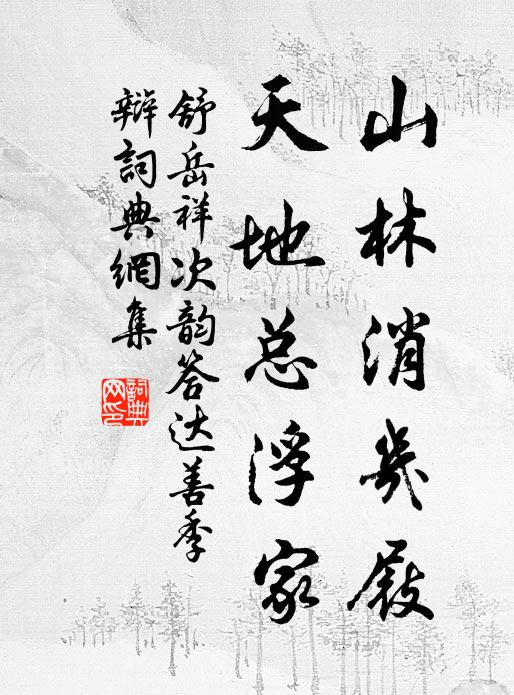 山林消幾屐
天地总浮家
舒岳祥次韵答达善季
辯詞典網集
詞典网印